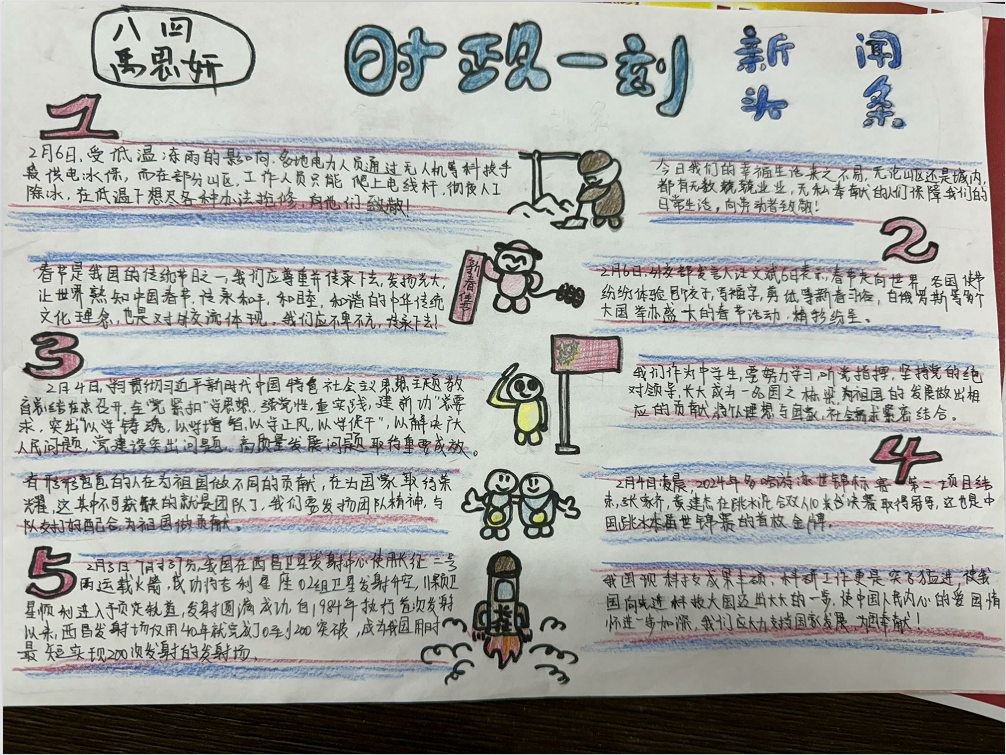 八四
禹思妍
时政一刻
新闻
头条
1
2月6日,受低温冻雨的影响,多地电力人员通过无人机等科技手
段供电水保,而在部分山区,工作人员只能爬上电线杆,彻夜人工
除冰,在低温下想尽各种办法抢修,向他们致敬!
今日我们的幸福生活来之不易,无论山区还是城内,
都有无数兢兢业业,无私奉献的人们保障我们的
日常生活,向劳动者致敬!
2
2月6日,外交部发言人汪文斌6日表示,春节走向世界,各国使节
纷纷体验包饺子,写福字,剪纸等新春习俗,白俄罗斯等多个
大国举办盛大的春节活动,精彩纷呈。
新春佳节
春节是我国的传统节日之一,我们应尊重并传承下去,发扬光大,
让世界熟知中国春节,传承和平,和睦,和谐的中华传统
文化理念,也是对外交流体现,我们应不卑不亢,传承下去!
3
2月4日,学习贯彻习近平新时代中国特色社会主义思想主题教
育总结在京召开,全党紧扣"学思想,强党性,重实践,建新功"总要
求,突出以学铸魂,以学增智,以学正风,以学促干",以解决广大
人民问题,党建设突出问题,高质量发展问题取得重要成效。
我们作为中学生,要努力学习,听党指挥,坚持党的绝
对领导,长大成为一名国之栋梁,为祖国的发展做出相
应的贡献,将个人理想与国家,社会需求紧密结合。
4
2月4日凌晨,2024年多哈游泳世锦标赛第一项目结
束,张家齐,黄建杰在跳水混合双人10米台决赛取得冠军,这也是中
国跳水本届世锦赛的首枚金牌。
有形形色色的人在为祖国做不同的贡献,在为国家取得荣
耀,这其中不可或缺的就是团队了,我们需发扬团队精神,与
队友们的配合,为祖国做贡献。
5
2月3日7时37分,我国在西昌卫星发射中心使用长征二号
丙运载火箭,成功将吉利星座02组卫星发射升空,11颗卫
星顺利进入予预定轨道,发射圆满成功,自1984年执行首次发射
以来,西昌发射场仅用40年就完成了0至200突破,成为我国用时
最短实现200次发射的发射场。
我国现科技成果丰硕,科研工作更是突飞猛进,使我
国向先进科技大国迈出大大的一步,使中国人民内心的爱国情
怀进一步加深,我们应大力支持国家发展,为国奉献!